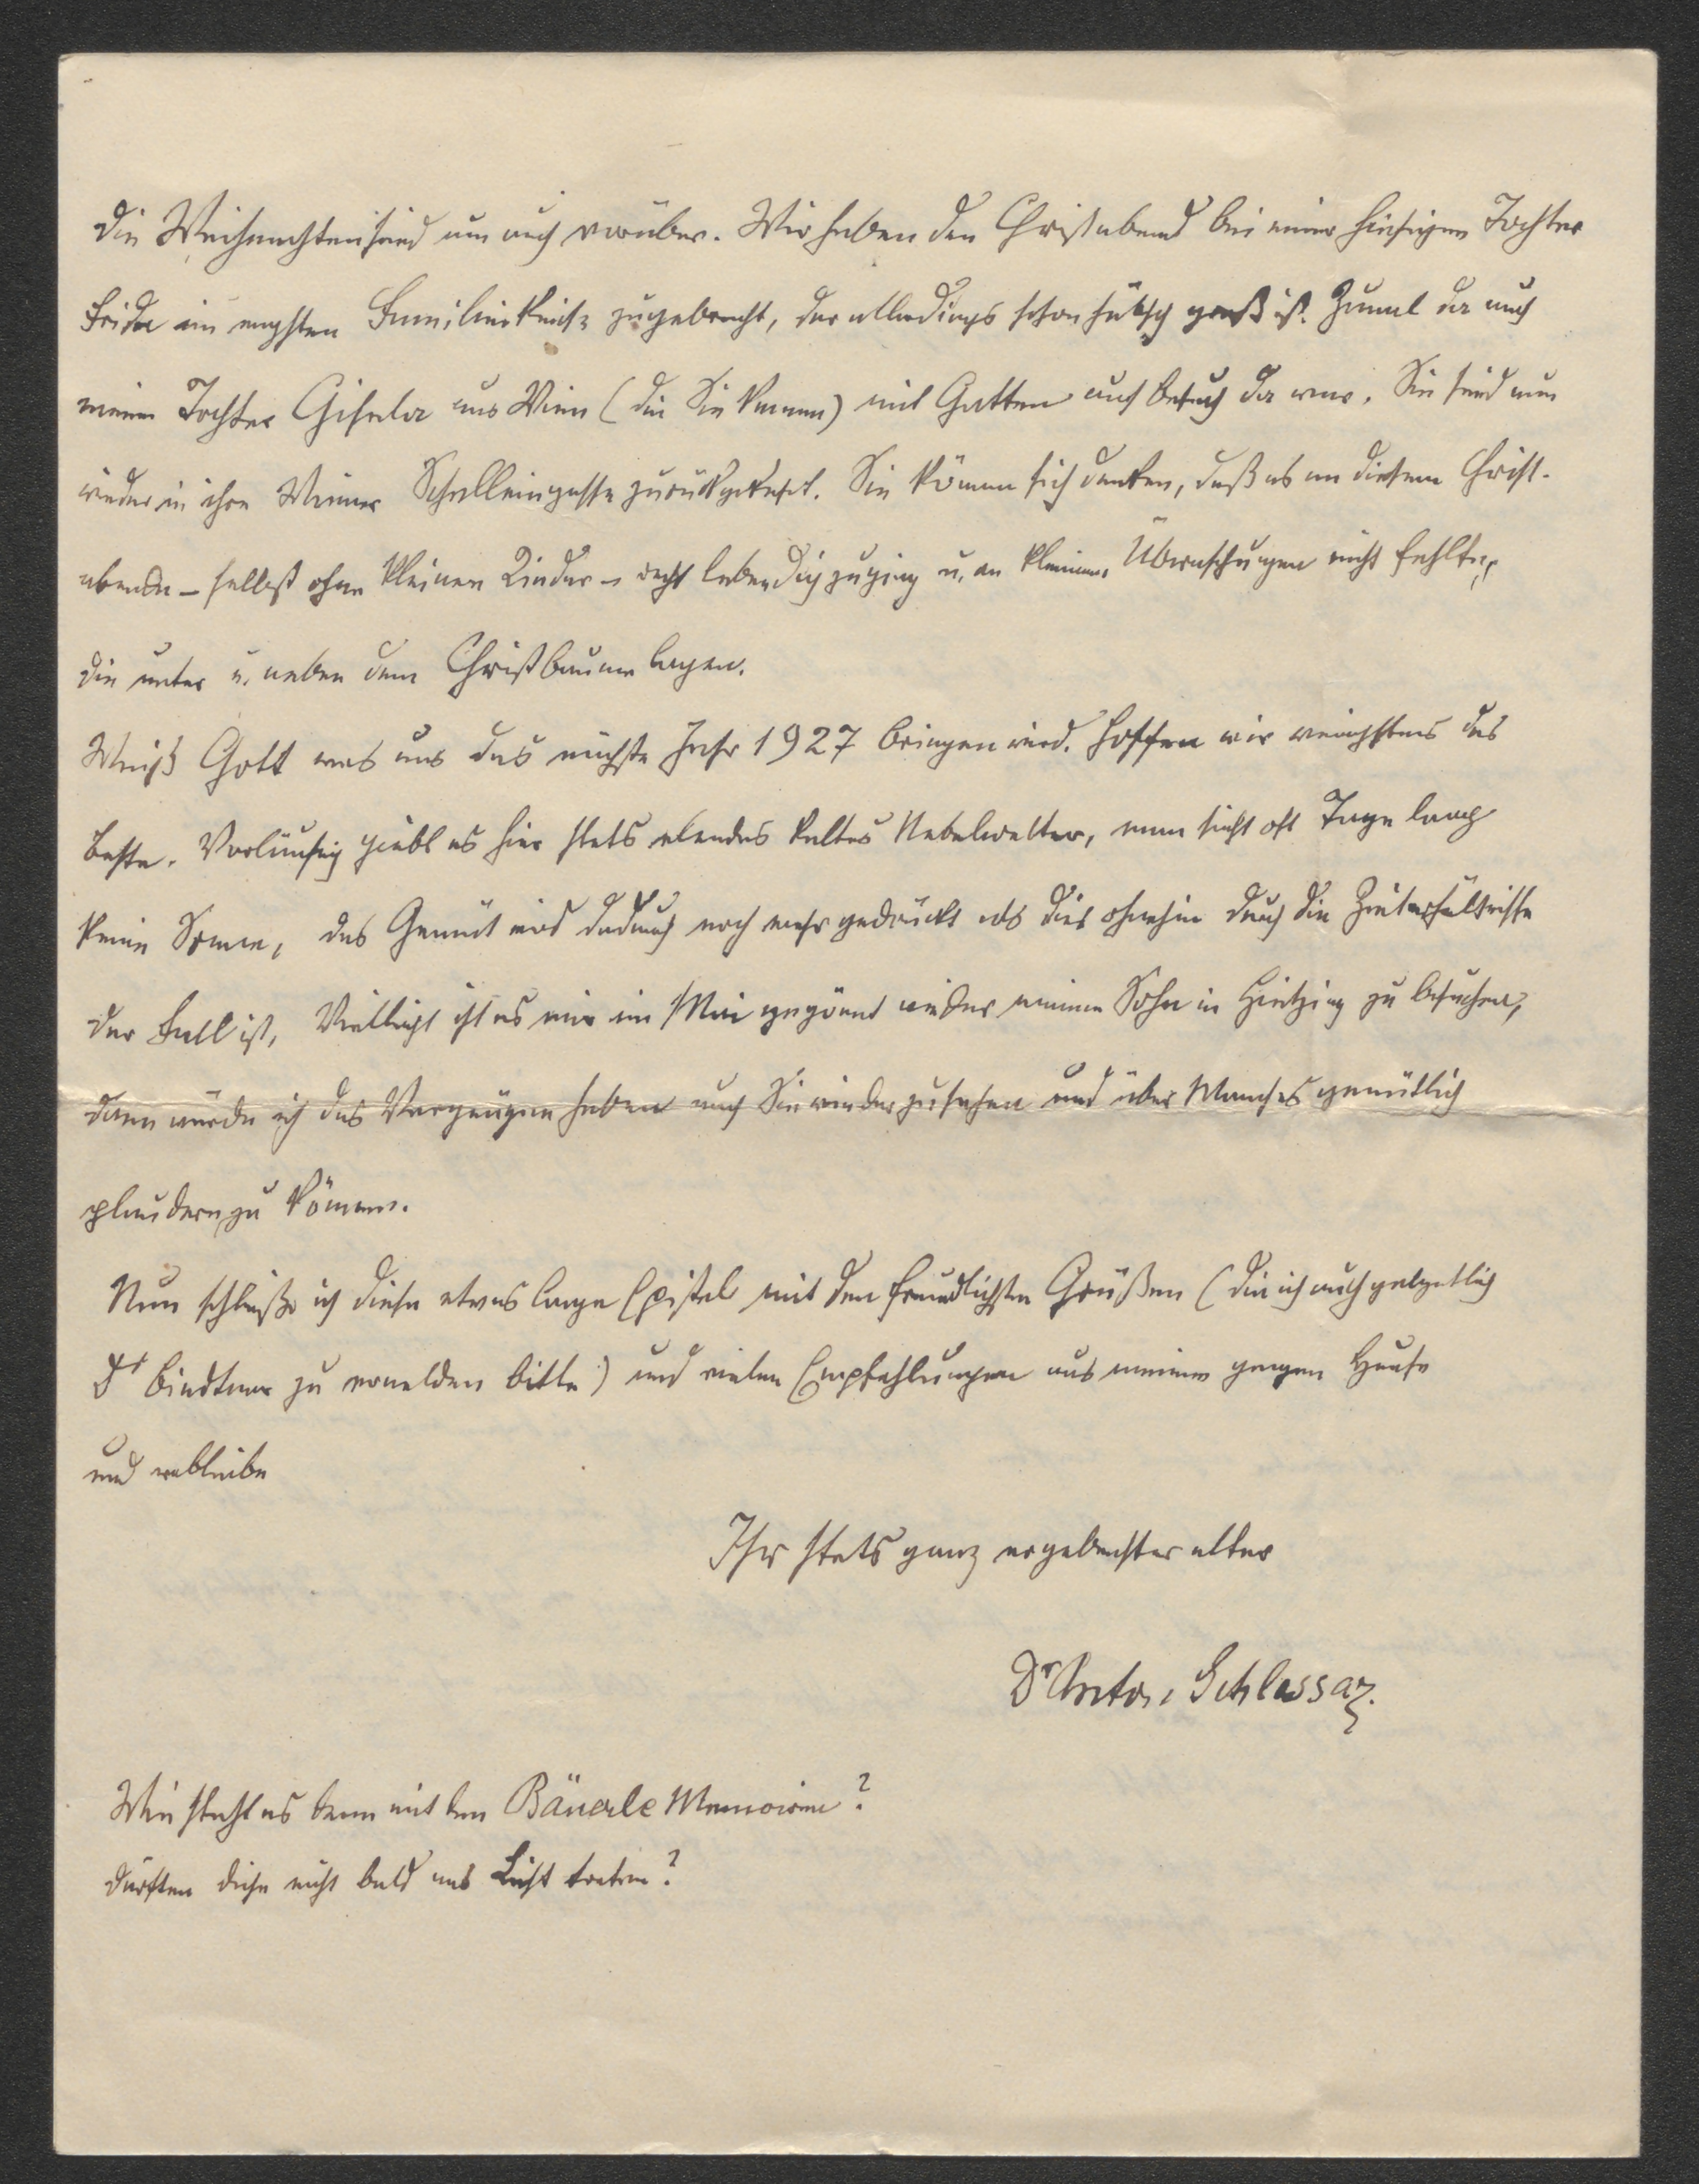 Die Weihnachten sind nun auch vorüber. Wir haben den Christabend bei meiner hiesigen Tochter
Frida im engsten Familienkreise zugebracht, der allerdings schon hübsch groß ist. Zumal da auch
meine Tochter Gisela aus Wien (die Sie kennen) mit Gatten auf Besuch da war. Sie sind nun
wieder in ihre Wiener Schelleingasse zurückgekehrt. Sie können sich denken, daß es an diesem Christ-
abende – selbst ohne kleinen Kinder – recht lebendig zuging u. an kleinen Überraschungen nicht fehlte,
die unter u. neben dem Christbaume lagen.
Weiß Gott was uns das nächste Jahr 1927 bringen wird. Hoffen wir wenigstens das
Beste. Vorläufig giebt es hier stets elendes kaltes Nebelwetter, man sieht oft Tage lang
keine Sonne, das Gemüt wird dadurch noch mehr gedrückt als dies ohnehin durch die Zeitverhältnisse
der Fall ist. Vielleicht ist es mir im Mai gegönnt wieder meinen Sohn in Hietzing zu besuchen,
dann würde ich das Vergnügen haben auch Sie wiederzusehen und über Manches gemütlich
plaudern zu können.
Nun schließe ich diese etwas lange Epistel mit den freundlichsten Grüßen (die ich auch gelegentlich
Dr Bindtner zu vermelden bitte) und vielen Empfehlungen aus meinem ganzen Hause
und verbleibe
Ihr stets ganz ergebenster alter
Dr Anton Schlossar.
Wie steht es denn mit den Bäuerle Memoiren?
Dürften diese nicht bald ans Licht treten?